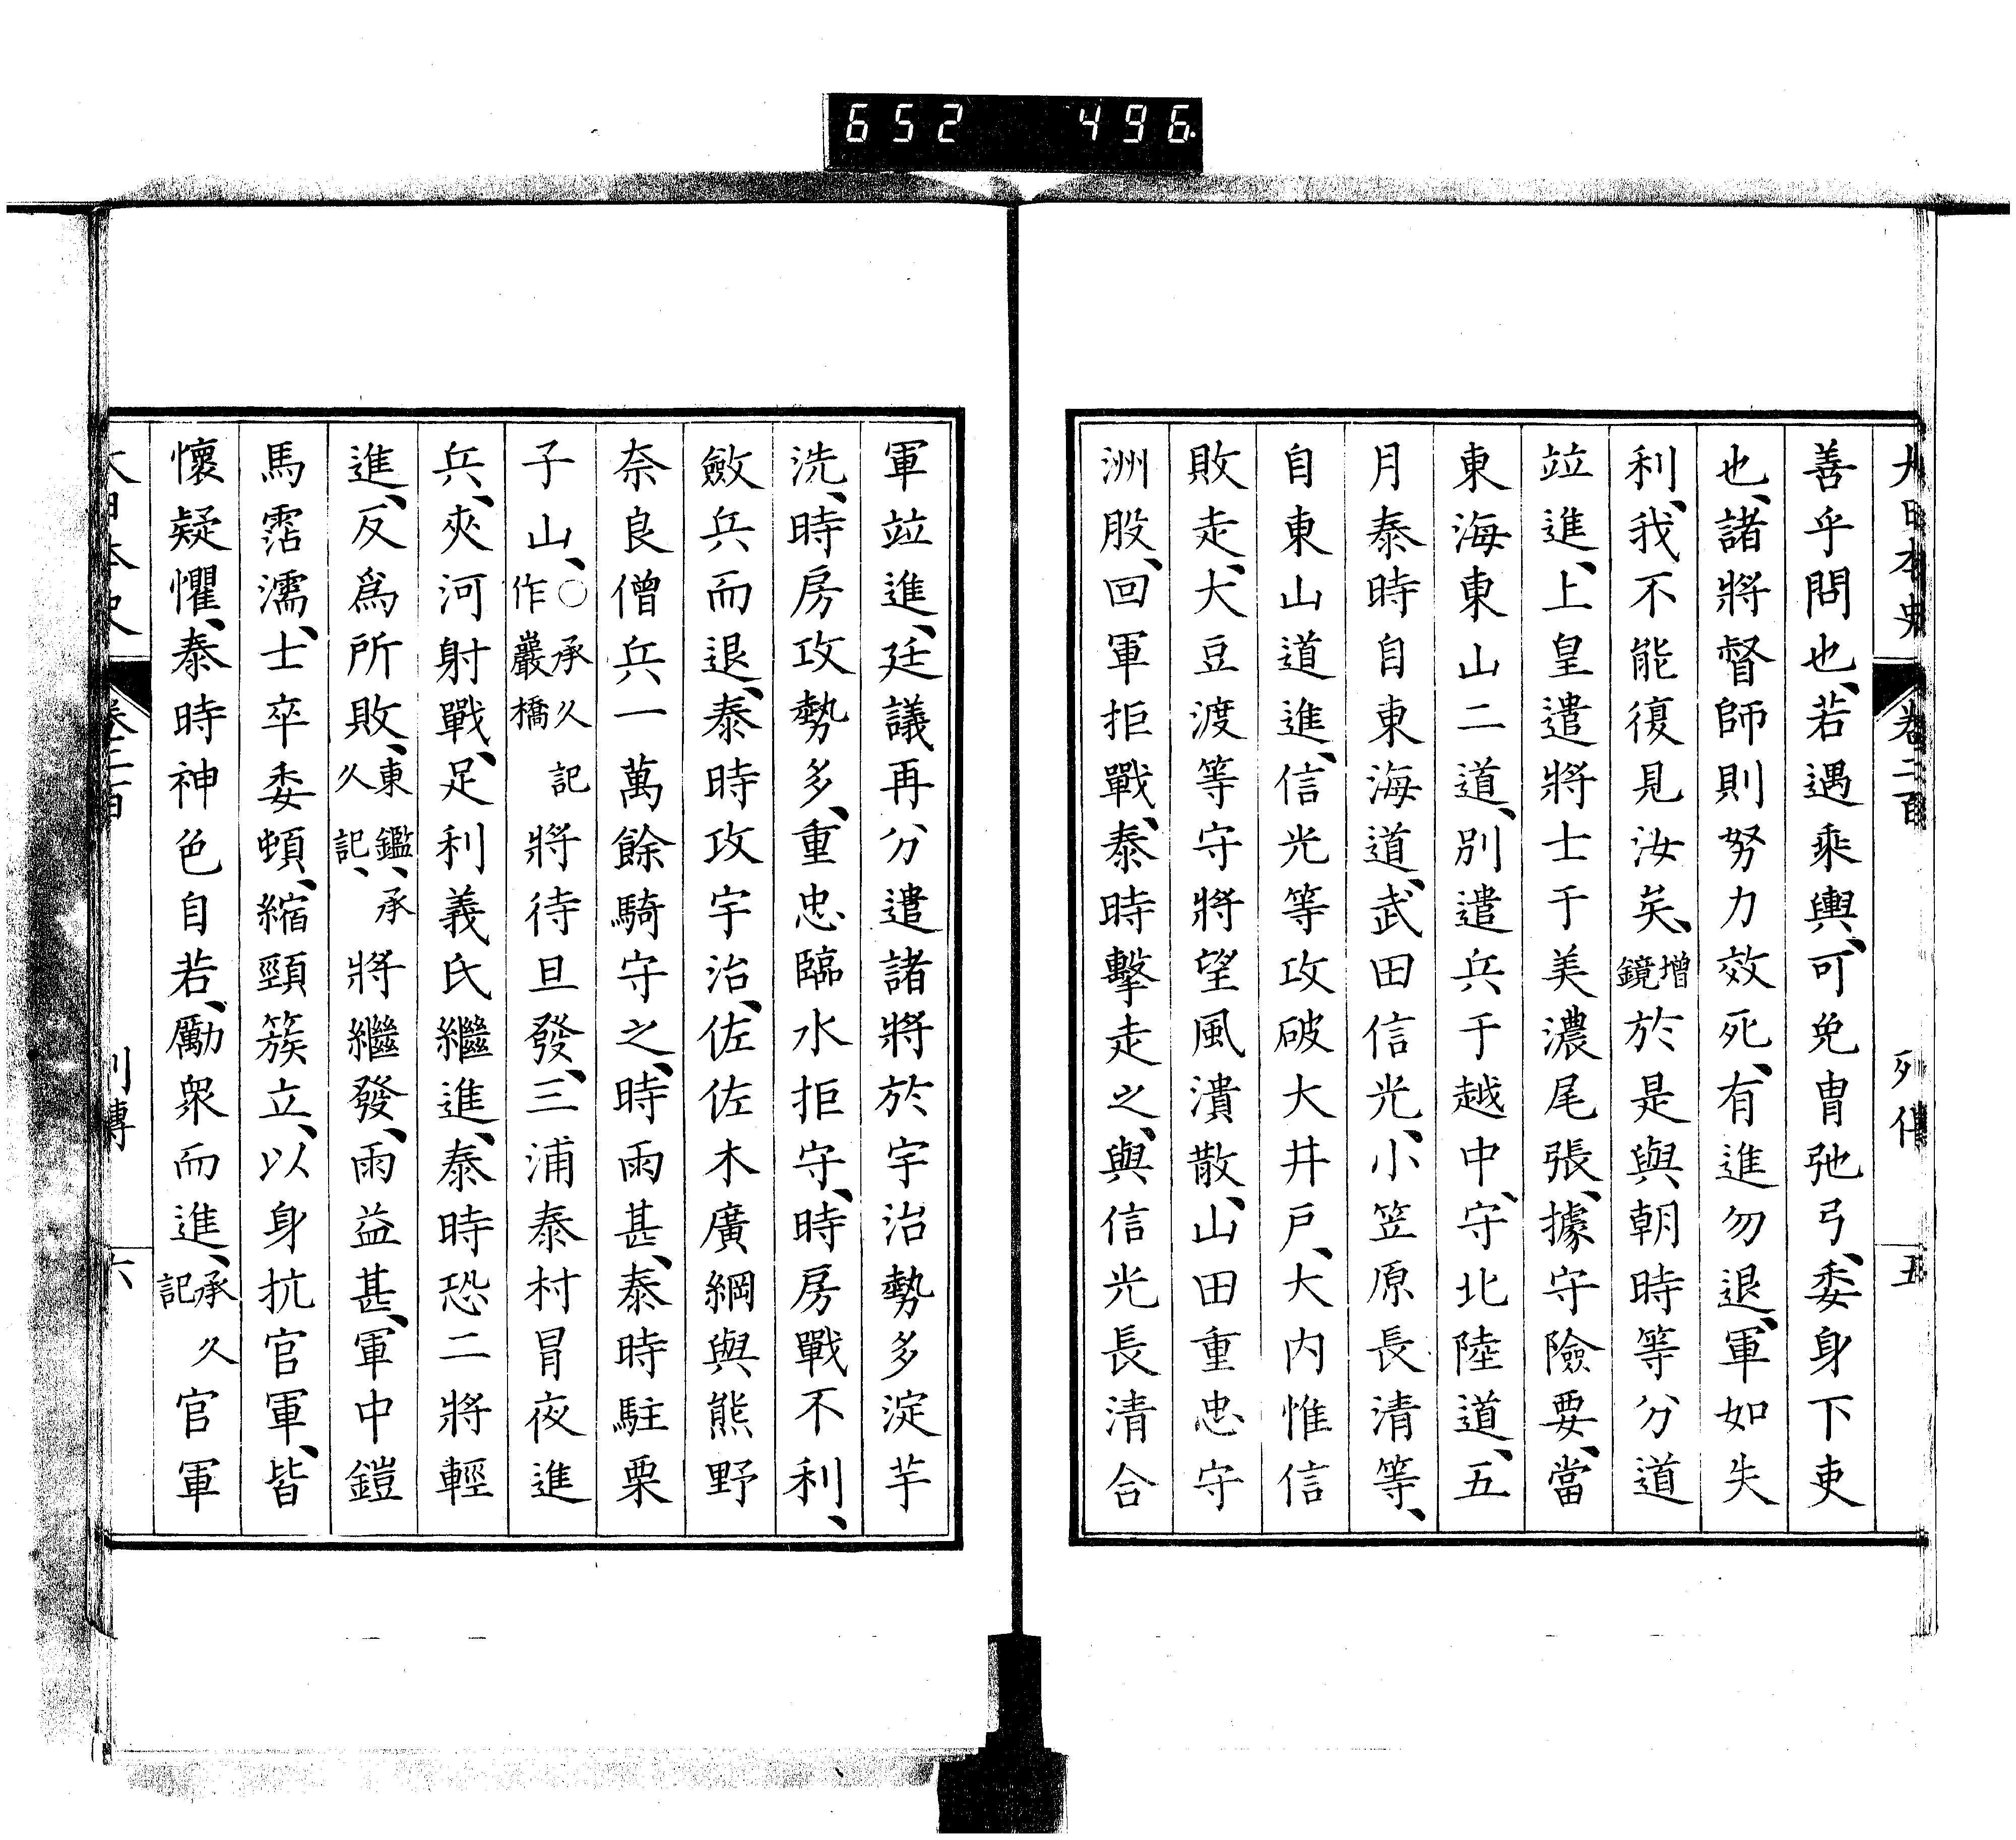 652 496
大日本史 卷二百 列傳 五
善乎問也、若遇乘輿、可免冑弛弓、委身下吏
也、諸將督師則努力效死、有進勿退、軍如失
利、我不能復見汝矣、增鏡於是與朝時等分道
竝進、上皇遣將士于美濃尾張、據守險要、當
東海東山二道、別遣兵于越中、守北陸道、五
月泰時自東海道、武田信光、小笠原長清等、
自東山道進、信光等攻破大井戶、大内惟信
敗走、大豆渡等守將望風潰散、山田重忠守
洲股、回軍拒戰、泰時擊走之、與信光長清合
軍竝進、廷議再分遣諸將於宇治勢多淀芋
洗、時房攻勢多、重忠臨水拒守、時房戰不利、
斂兵而退、泰時攻宇治、佐佐木廣綱與熊野
奈良僧兵一萬餘騎守之、時雨甚、泰時駐栗
子山、○承久記作巖橋將待旦發、三浦泰村冒夜進
兵、夾河射戰、足利義氏繼進、泰時恐二將輕
進、反爲所敗、東鑑、承久記、將繼發、雨益甚、軍中鎧
馬霑濡、士卒委頓、縮頸簇立、以身抗官軍、皆
懷疑懼、泰時神色自若、勵衆而進、承久記官軍
大日本史 卷二百 列傳 六